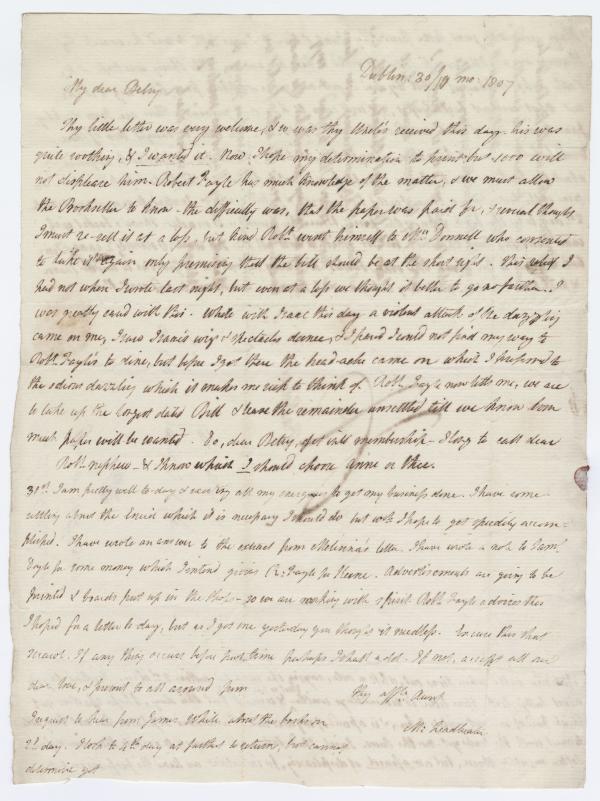 Dublin 30/ mo: 1807
My dear Betsy
Thy little letter was very welcome, & so was thy Uncle's received this day. his was
quite soothing, & I wanted it. Now I hope my determination to print but 1000 will
not displease him. Robert Fayle has much knowledge of the matter, & we must allow
the Bookseller to know - the difficulty was, that the paper was paid for, & I thought
I must re-sell it at a loss, but kind Robt. went himself to McDonnell who consented
to take it again only premising that the bill should be at the short sight. This I
had not when I wrote last night, but even at a loss we thought it better to go no farther. I
was greatly eased with this. While with Isaac this day a violent attack of the dazzling
came on me, I was Isaac's wig & spectacles , & I feared I could not find my way to
Robt. Fayle's to dine, but before I got there the head-ache came on which I preferred to
the odious dazzling which it makes me sick to think of. Robt. Fayle now tells me, we are
to take up the longest dated Bill & leave the remainder unsettled till we know how
much paper will be wanted. So, dear Betsy, membership - I long to call dear
Robt. nephew - & I know which I should choose Anne or thee.
31st. I am pretty well to-day & all my energies to get my business done. I have some
settling about the Eneid which it is necessary I should do but wch. I hope to get speedily accom-
plished. I have wrote an answer to the extract from Melesina's letter. I have wrote a note to Saml.
Fayle for some money which I intend giving R: Fayle for . Advertisements are going to be
printed & boards put up in the shops - so we are working with spirit. Robt. Fayle advises this
I hoped for a letter to day, but as I got one yesterday you thought it needless. Excuse this that
. If any thing occurs before time perhaps I shall add. If not, accept all our
dear love, & present to all around from
Thy affte. Aunt
I request to hear from James White about the books on
M: Leadbeater
2d. day. I look to 4th. day at furthest to return, but cannot
determine yet